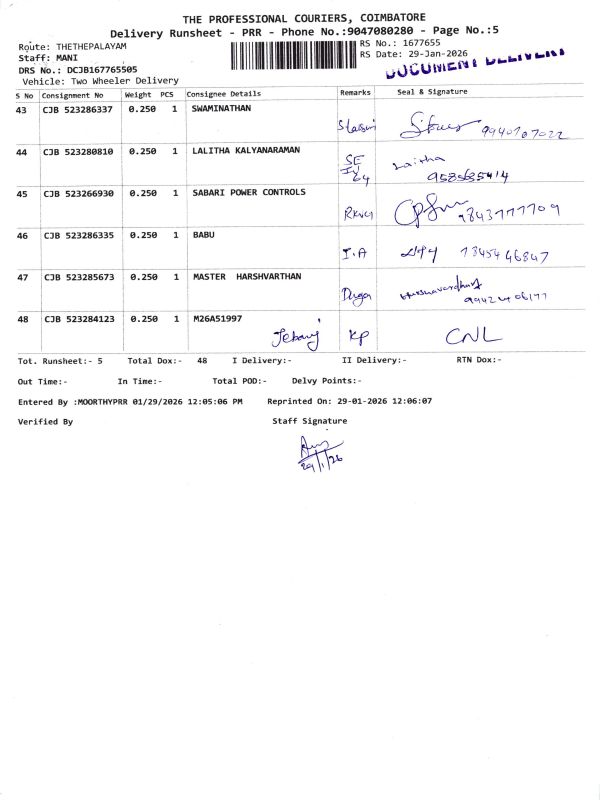 THE PROFESSIONAL COURIERS, COIMBATORE
Delivery Runsheet - PRR - Phone No.:9047080280 - Page No.:5
Route: THETHEPALAYAM
RS No.: 1677655
Staff: MANI
RS Date: 29-Jan-2026
DRS No.: DCJB167765505
DOCUMENT DELIVERY
Vehicle: Two Wheeler Delivery
S No Consignment No Weight PCS Consignee Details Remarks Seal & Signature
43 CJB 523286337 0.250 1 SWAMINATHAN
44 CJB 523280810 0.250 1 LALITHA KALYANARAMAN
SE
Lalitha
45 CJB 523266930 0.250 1 SABARI POWER CONTROLS
9843777709
46 CJB 523286335 0.250 1 BABU
I.A
47 CJB 523285673 0.250 1 MASTER HARSHVARTHAN
48 CJB 523284123 0.250 1 M26A51997
KP CNL
Tot. Runsheet:- 5 Total Dox:- 48 I Delivery:- II Delivery:- RTN Dox:-
Out Time:- In Time:- Total POD:- Delvy Points:-
Entered By :MOORTHYPRR 01/29/2026 12:05:06 PM Reprinted On: 29-01-2026 12:06:07
Verified By Staff Signature
29/1/26